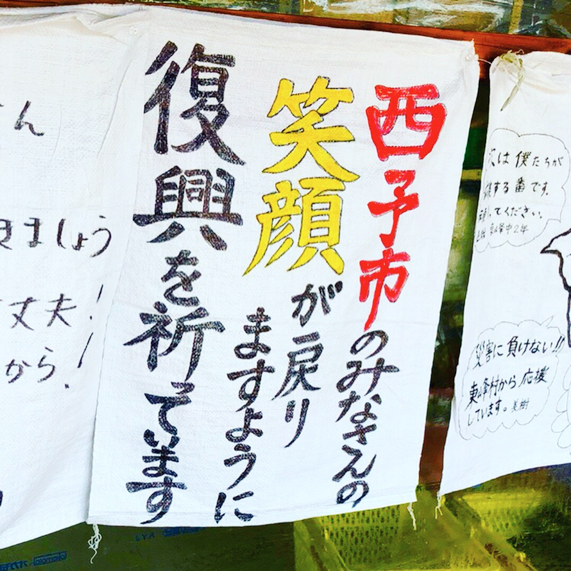 西予市のみなさんの
笑顔が戻り
ますように
復興を祈ってます
次は僕たちが
する番です。
してください。
災害に負けない!!
東峰村から応援
しています。美樹
さん
きましょう
丈夫!
から!